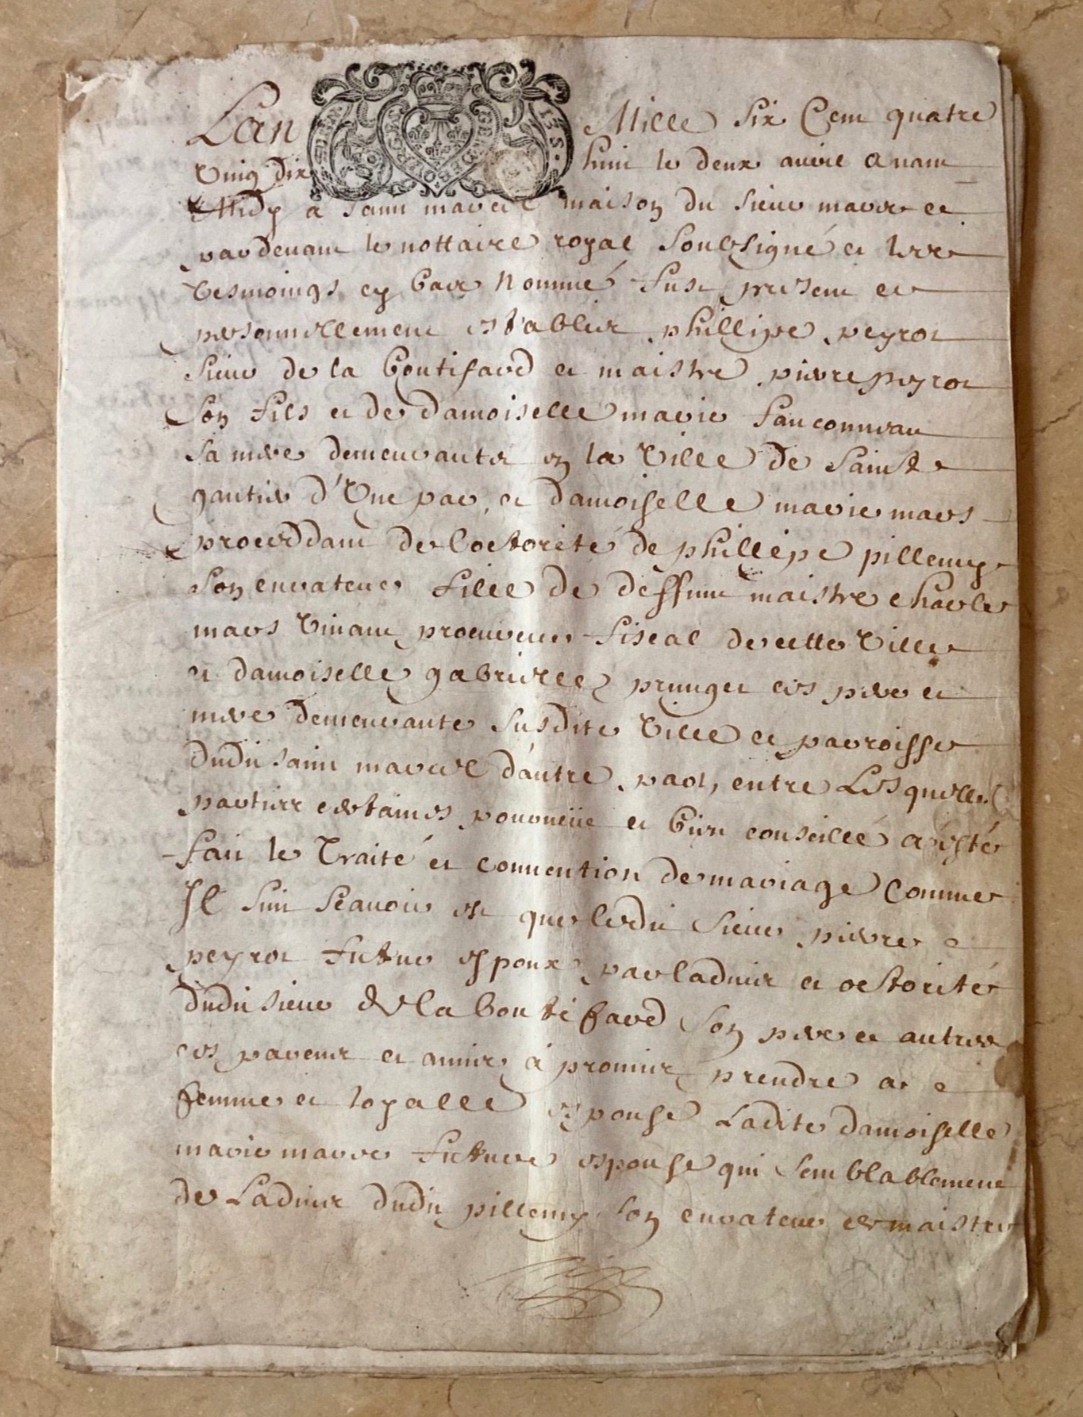 Lan Mille Six Cem quatre
Vingt dix huit le deux avril avant
Midy a Saint maixent maison du Sieur mavre et
pardevant le nottaire royal Soubsigné et
tesmoings cy bas Nommé fust present et
personnellement establir phillipe peyrot
Sieur de la Gontifard et maistre pierre peyrot
Son fils et de damoiselle marie fauconneau
sa mere demeurants en la Ville de Saint
gautier d'Une par, et damoiselle marie mars
proceddant de loctorité de phillipe pillemy
Son curateur fille de deffunt maistre charles
mars Vivant procureur fiscal de cette Ville
et damoiselle gabrielle pruuget ses pere et
mere demeurante Susdite Ville et parroisse
dudit saint d'autre part, entre Lesquelles
parties certaines pourveüe et bien conseillé a esté
fait le Traité et convention de mariage Comme
Il Suit Scavoir est que ledit Sieur pierre
peyrot futur espoux par ladvis et octorité
dudit sieur de la bontifard Son pere et autres
ses parents et amis à promis prendre a
femme et loyalle espouse Ladite damoiselle
marie marre future espouse qui Semblablement
de Ladvis dudit pillemy Son curateur et maistre